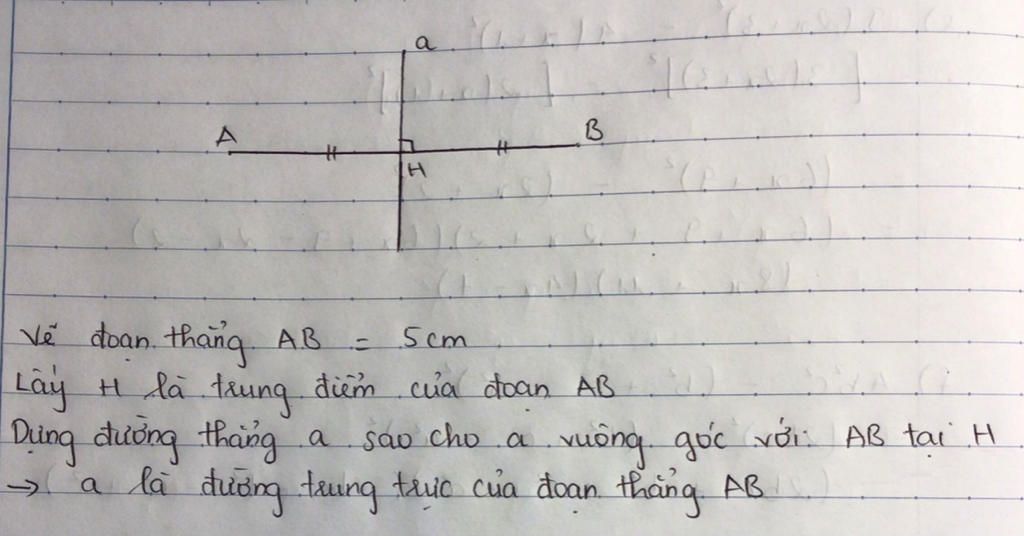 a
A
B
H
Vẽ đoạn thẳng AB = 5cm
Lấy H là trung điểm của đoạn AB
Dựng đường thẳng a sao cho a vuông góc với AB tại H
→ a là đường trung trực của đoạn thẳng AB